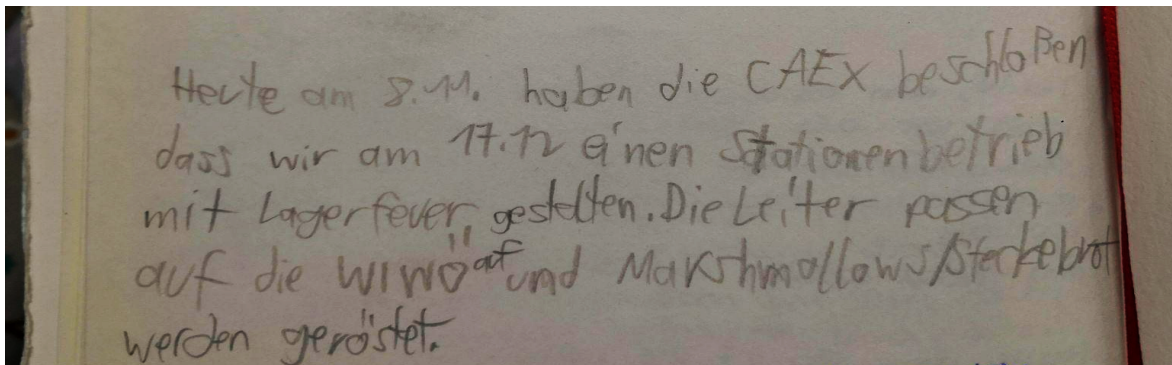 Heute am 8.11. haben die CAEX beschloßen
dass wir am 17.12 einen Stationenbetrieb
mit Lagerfeuer, gestalten. Die Leiter passen
auf die WIWÖ auf und Marshmallows/Steckebrot
werden geröstet.